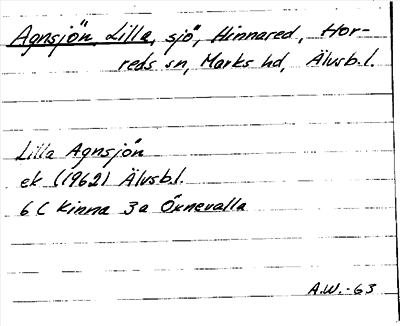 Agnsjön, Lilla, sjö, Hinnared, Hor-
reds sn, Marks hd, Älvsb.l.
Lilla Agnsjön
ek (1962) Älvsb.l.
6 C Kinna 3a Öxnevalla
A.W.-63